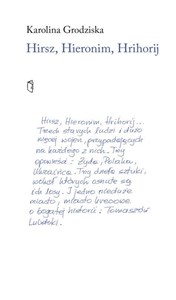 Karolina Grodziska
Hirsz, Hieronim, Hrihorij
Hirsz, Hieronim, Hrihorij...
Trzech starych ludzi i dwie
wojny, przypadających
na każdego z nich. Trzy
opowieści: Żyda, Polaka,
Ukraińca. Trzy dzieła sztuki,
wokół których osnute są
ich losy. I jedno nieduże
miasto, miasto kresowe
o bogatej historii: Tomaszów
Lubelski.